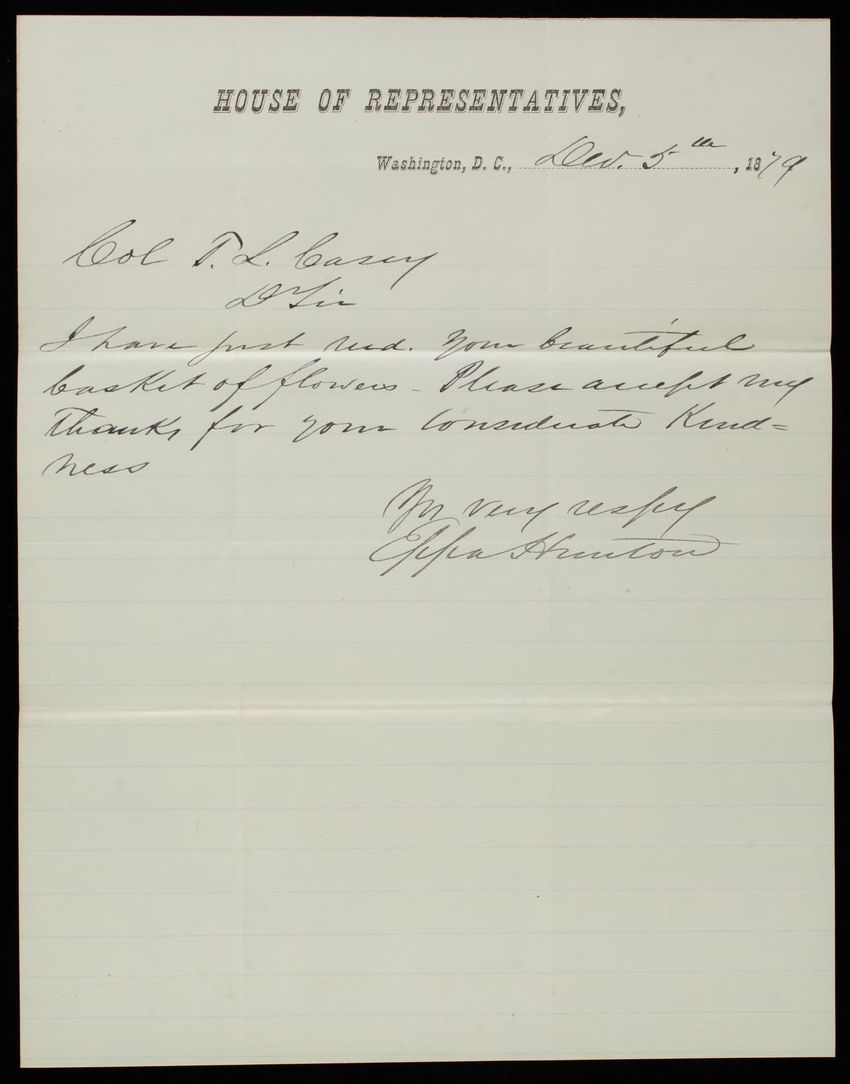 HOUSE OF REPRESENTATIVES,
Washington, D. C., Dec. 5th, 1879
Col T. L. Casey
Dr Sir
I have just recd. your beautiful
basket of flowers - Please accept my
thanks for your considerate Kind=
ness
Yr very respy
Eppa Hunton